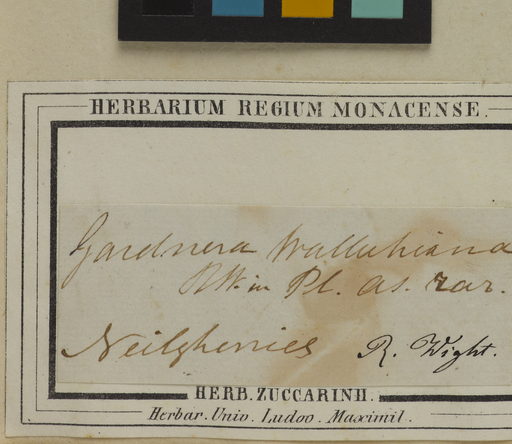 HERBARIUM REGIUM MONACENSE.
Gardnera Wallichiana
RW. in Pl. As. rar.
Neilgherries R. Wight.
HERB. ZUCCARINII.
Herbar. Univ. Ludov. Maximil.